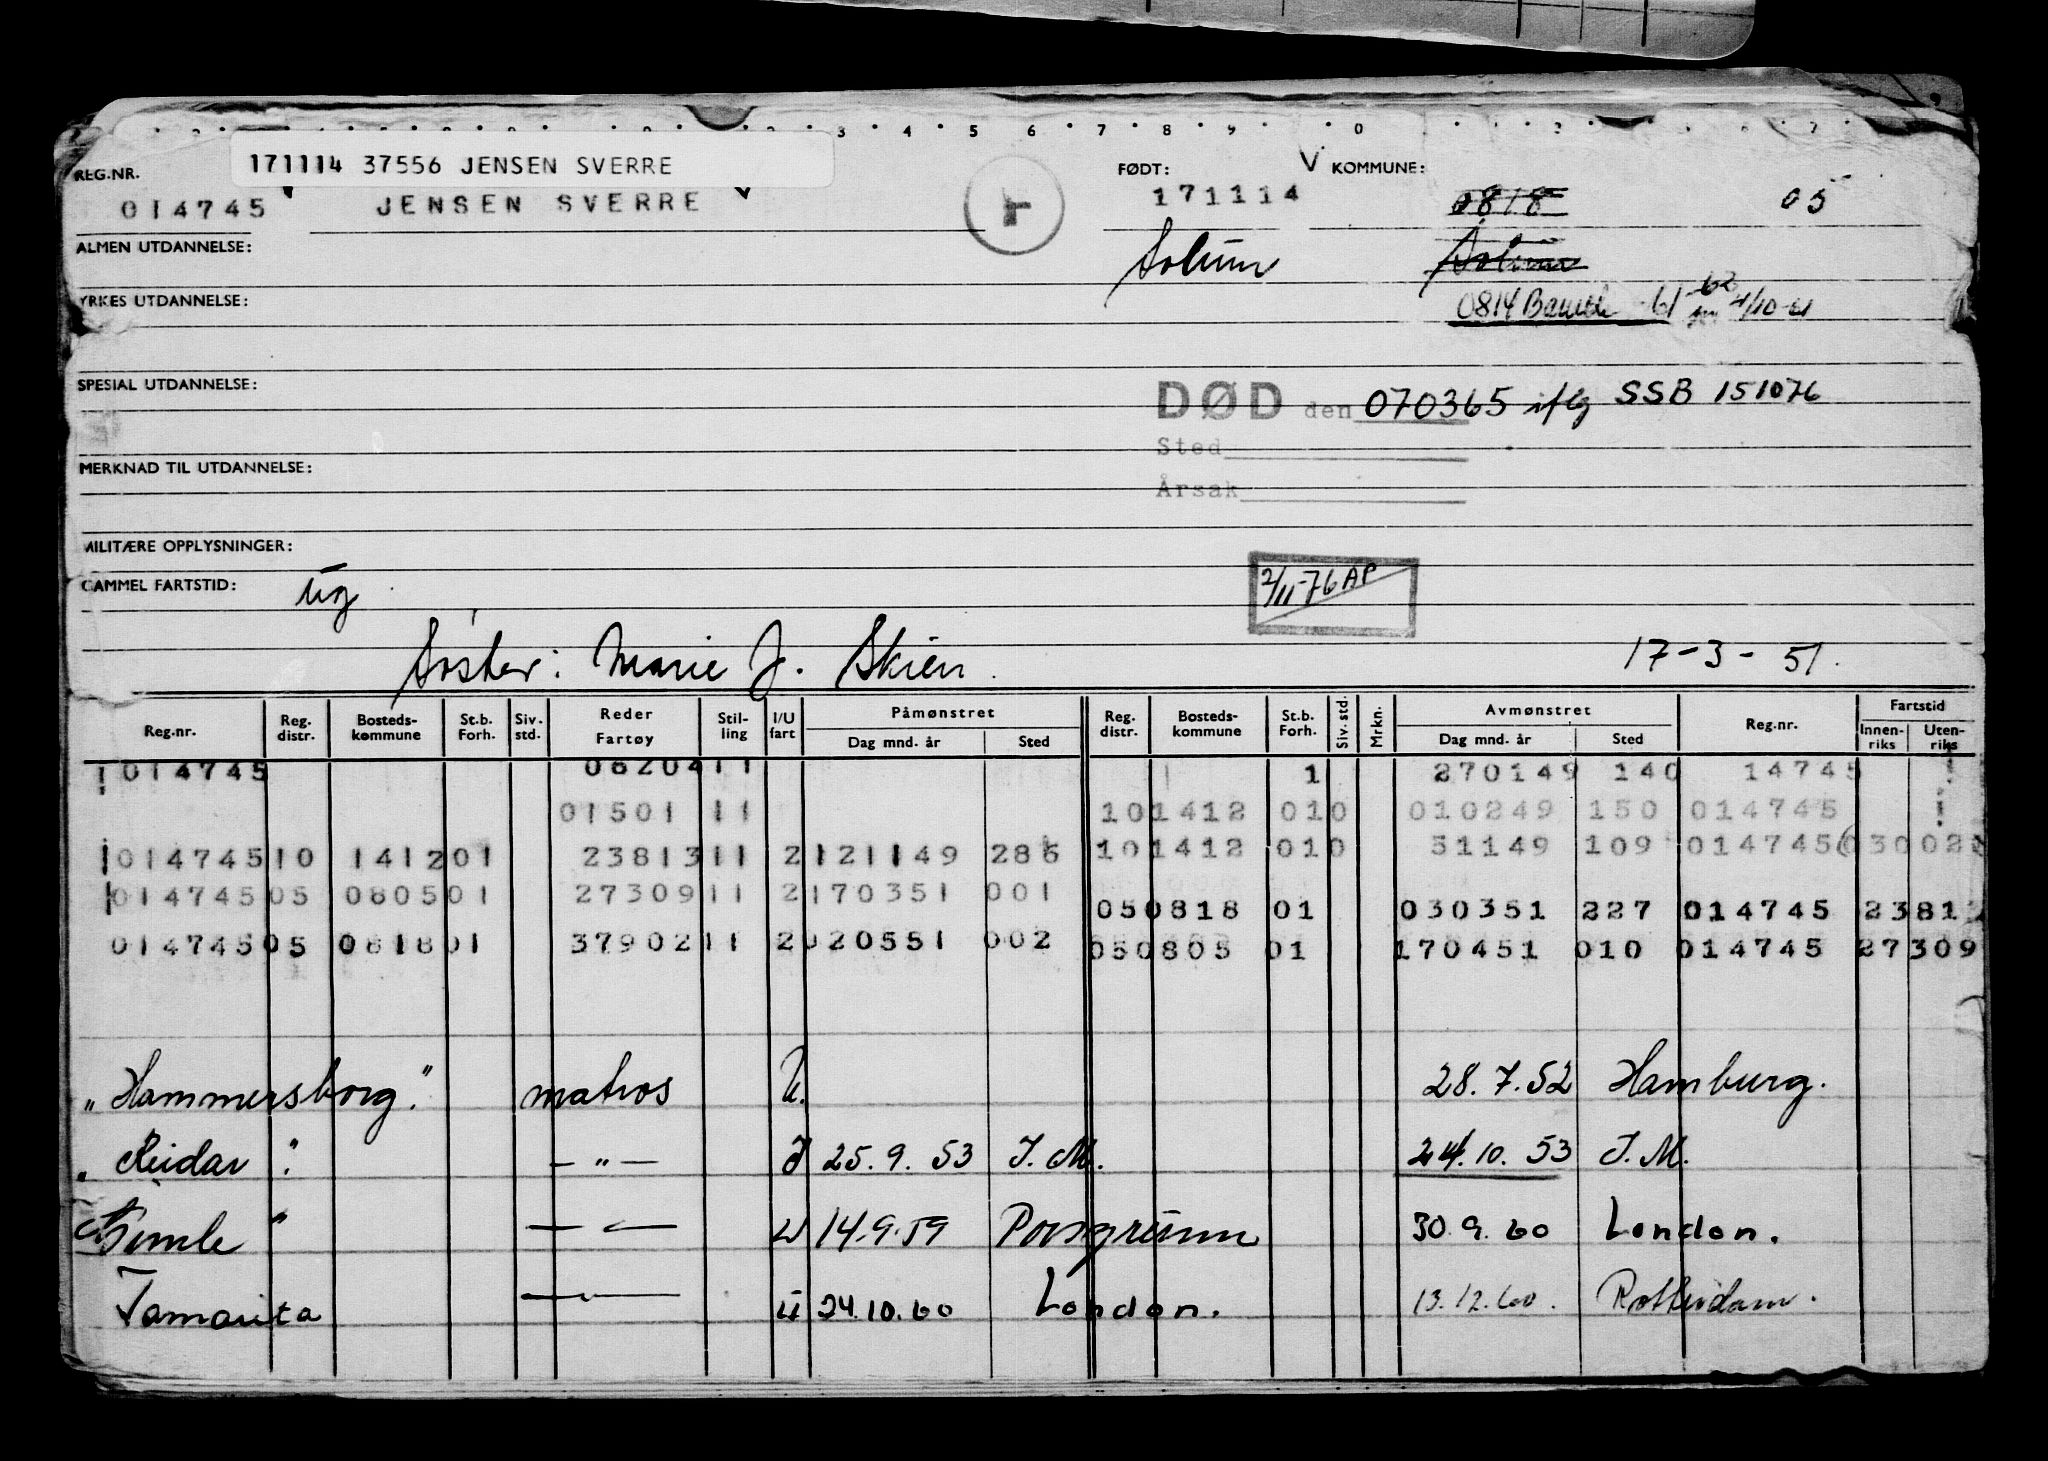 3 4 5 6 7 8 9 0
171114 37556 JENSEN SVERRE
REG.NR. FØDT: V KOMMUNE:
014745 JENSEN SVERRE 171114 0818 05
ALMEN UTDANNELSE: Solum Solum
YRKES UTDANNELSE: 0814 Bamble -61 -62 4/10-61
SPESIAL UTDANNELSE:
DØD den 070365 iflg SSB 151076
Sted
MERKNAD TIL UTDANNELSE:
Årsak
MILITÆRE OPPLYSNINGER:
GAMMEL FARTSTID: ug 2/11-76 AP
Søster: Marie J. Skien. 17-3-51.
Reg.nr. Reg. distr. Bosteds-kommune St.b. Forh. Siv. std. Reder Fartøy Stil-ling I/U fart Påmønstret Dag mnd. år Sted Reg. distr. Bosteds-kommune St.b. Forh. Siv. std. Mrkn. Avmønstret Dag mnd. år Sted Reg.nr. Fartstid Innen-riks Uten-riks
014745 0620411 1 270149 140 14745
01501 11 101412 010 010249 150 014745
014745 10 1412 01 23813 11 2 121149 286 101412 010 31149 109 014745
014745 05 0805 01 27309 11 2 170351 001 050818 01 030351 227 014745 2381
014745 05 0818 01 37902 11 2 020551 002 050805 01 170451 010 014745 27309
"Hammersborg." matros U. 28.7.52 Hamburg.
"Reidar" — " — J 25.9.53 J.M. 24.10.53 J.M.
Gimle " — " — U 14.9.59 Porsgrunn 30.9.60 London.
Tamarita — U 24.10.60 London. 13.12.60. Rotterdam.